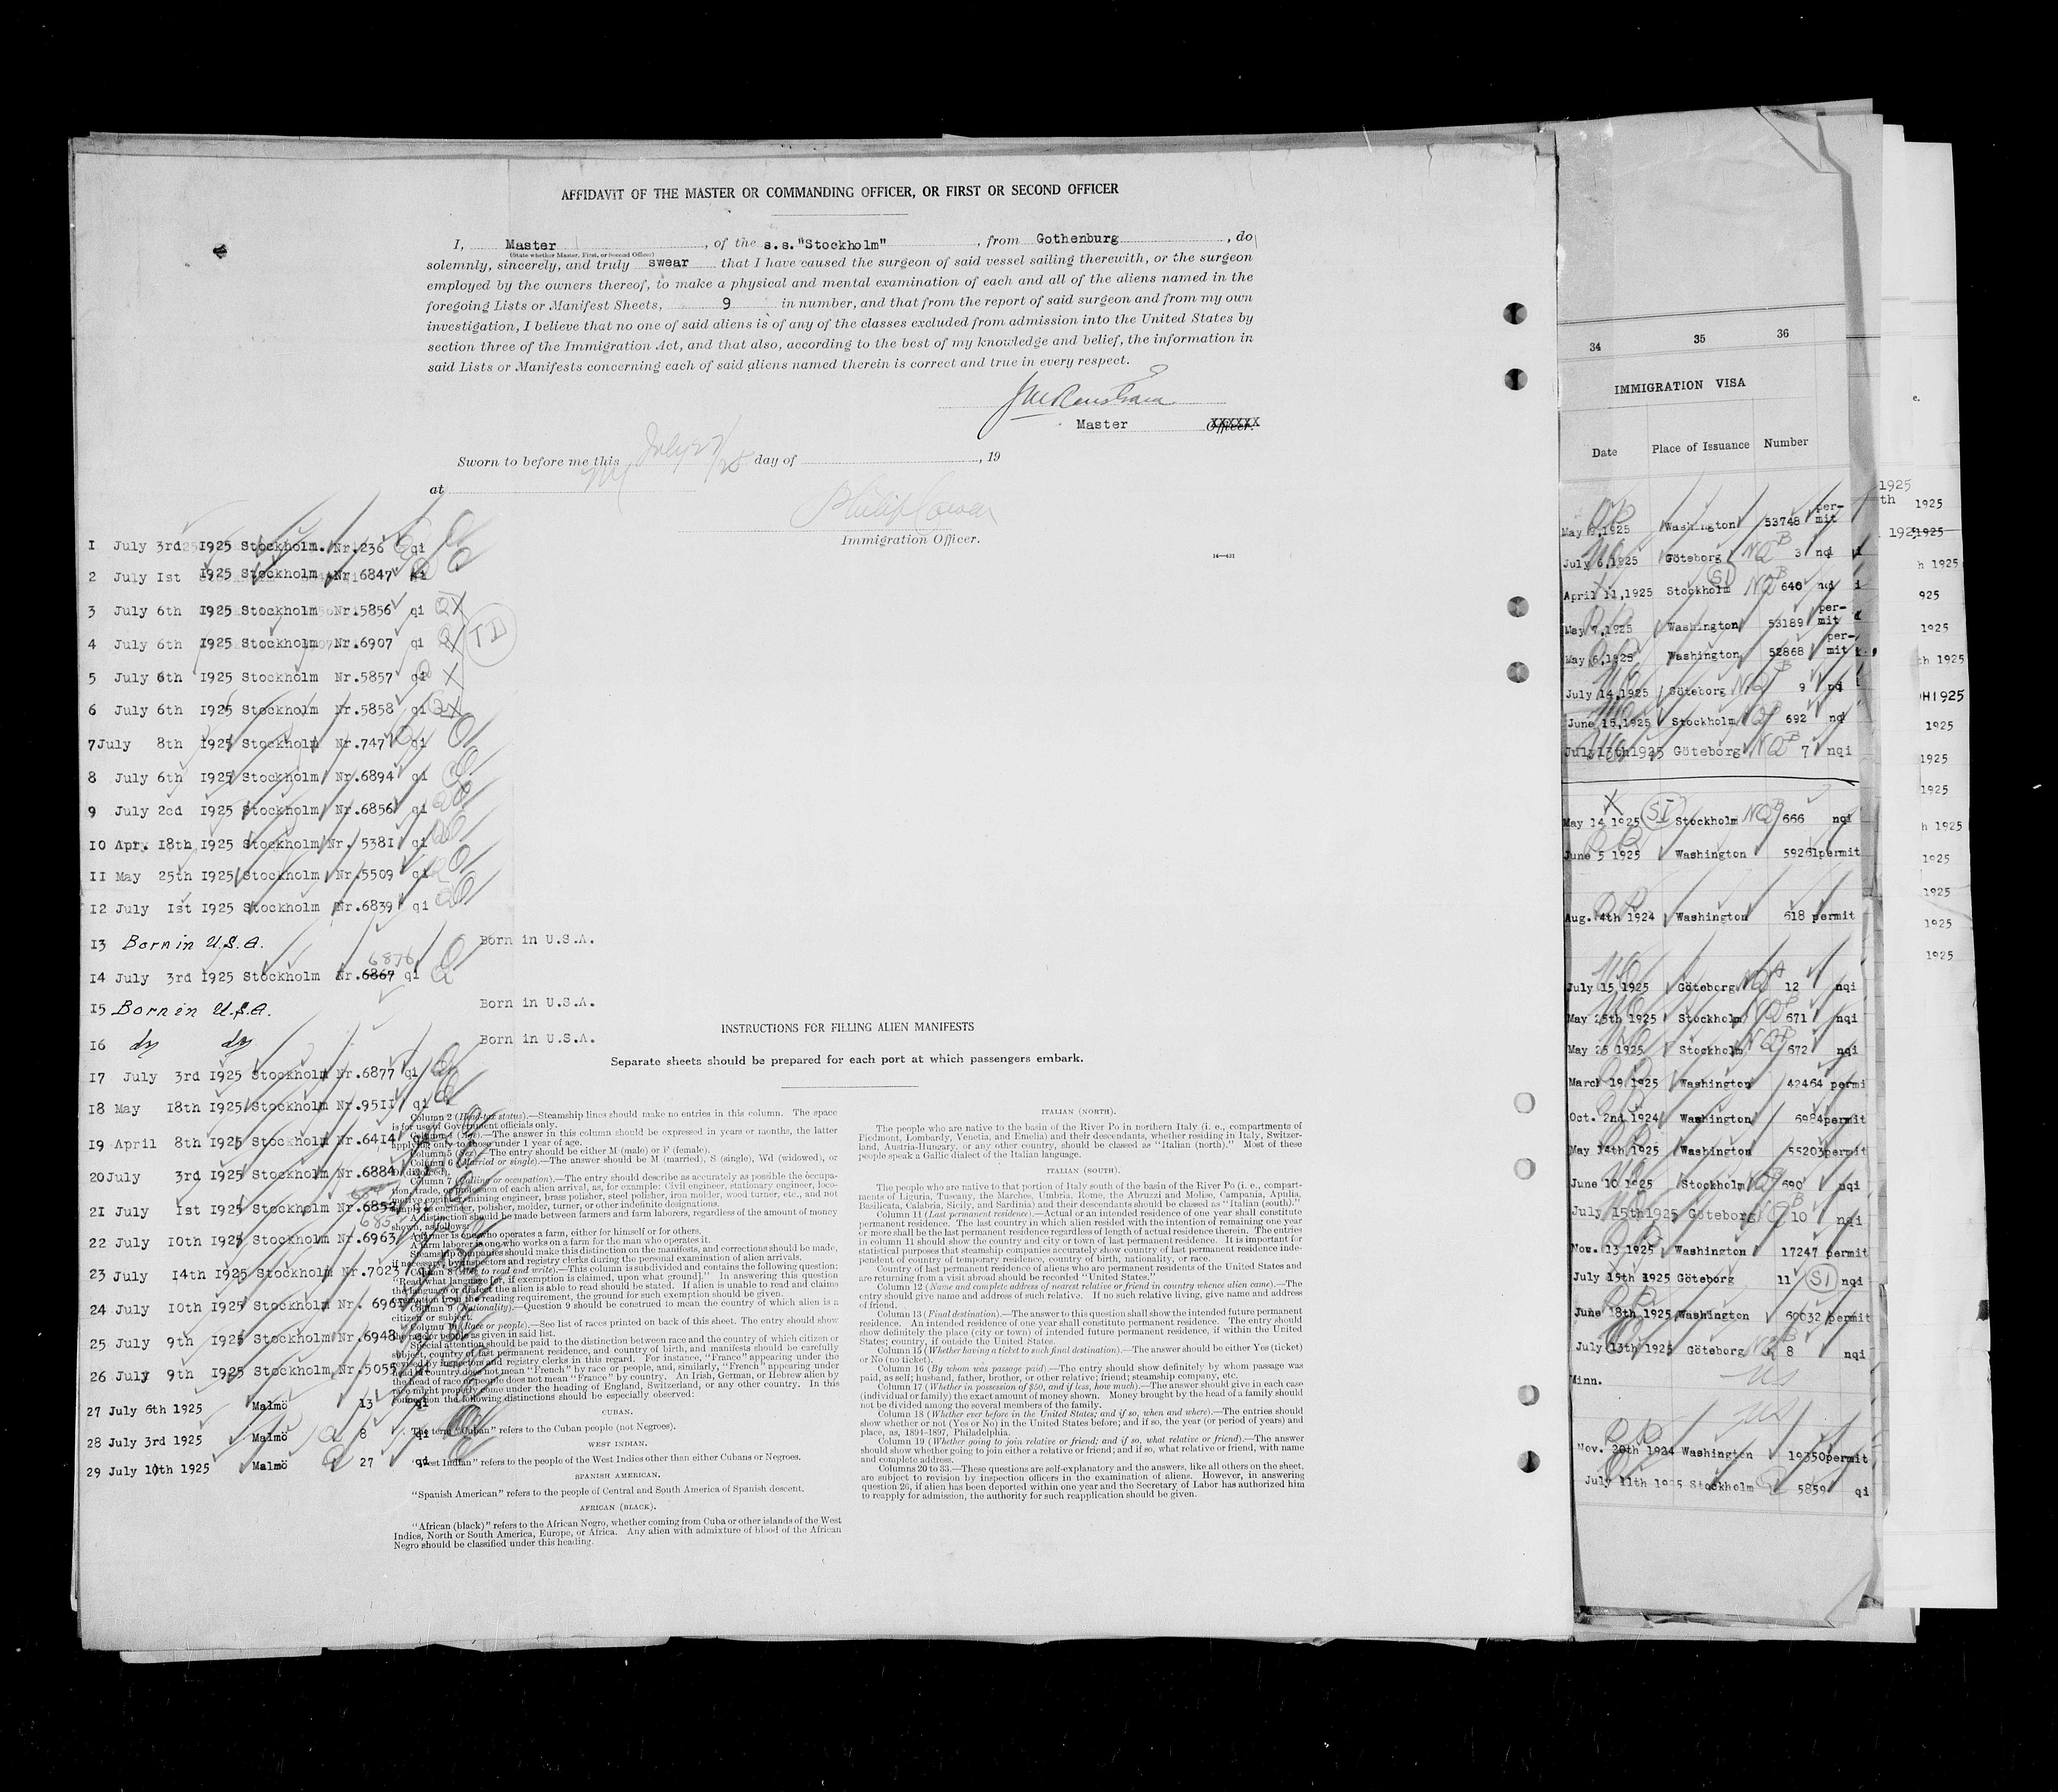 AFFIDAVIT OF THE MASTER OR COMMANDING OFFICER, OR FIRST OR SECOND OFFICER
I, Master , of the s.s."Stockholm" , from Gothenburg , do
(State whether Master, First, or Second Officer)
solemnly, sincerely, and truly swear that I have caused the surgeon of said vessel sailing therewith, or the surgeon
employed by the owners thereof, to make a physical and mental examination of each and all of the aliens named in the
foregoing Lists or Manifest Sheets, 9 in number, and that from the report of said surgeon and from my own
investigation, I believe that no one of said aliens is of any of the classes excluded from admission into the United States by
section three of the Immigration Act, and that also, according to the best of my knowledge and belief, the information in
said Lists or Manifests concerning each of said aliens named therein is correct and true in every respect.
Master Officer.
Sworn to before me this July 27/25 day of , 19
at NY
Immigration Officer.
1 July 3rd 1925 Stockholm. Nr.236 qi
2 July 1st 1925 Stockholm Nr 6847 qi
3 July 6th 1925 Stockholm Nr.5856 qi
4 July 6th 1925 Stockholm Nr.6907 qi
TD
5 July 6th 1925 Stockholm Nr.5857 qi
6 July 6th 1925 Stockholm Nr.5858 qi
7July 8th 1925 Stockholm Nr.747 qi
8 July 6th 1925 Stockholm Nr.6894 qi
9 July 2cd 1925 Stockholm Nr.6856 qi
10 Apr. 18th 1925 Stockholm Nr. 5381 qi
11 May 25th 1925 Stockholm Nr.5509 qi
12 July 1st 1925 Stockholm Nr.6839 qi
13 Born in U.S.A. Born in U.S.A.
6876
14 July 3rd 1925 Stockholm Nr.6867 qi
15 Born in U.S.A. Born in U.S.A.
16 do do Born in U.S.A.
17 July 3rd 1925 Stockholm Nr.6877 qi
18 May 18th 1925 Stockholm Nr.9511 qi
19 April 8th 1925 Stockholm Nr.6414
20July 3rd 1925 Stockholm Nr.6884
21 July 1st 1925 Stockholm Nr.6852
22 July 10th 1925 Stockholm Nr.6963
23 July 14th 1925 Stockholm Nr.7023
24 July 10th 1925 Stockholm Nr. 6961
25 July 9th 1925 Stockholm Nr.6948
26 July 9th 1925 Stockholm Nr.5055
27 July 6th 1925 Malmö 13 qi
28 July 3rd 1925 Malmö 8 qi
29 July 10th 1925 Malmö 27 qi
INSTRUCTIONS FOR FILLING ALIEN MANIFESTS
Separate sheets should be prepared for each port at which passengers embark.
Column 2 (Head-tax status).—Steamship lines should make no entries in this column. The space
is for use of Government officials only.
Column 4 (Age).—The answer in this column should be expressed in years or months, the latter
applying only to those under 1 year of age.
Column 5 (Sex).—The entry should be either M (male) or F (female).
Column 6 (Married or single).—The answer should be M (married), S (single), Wd (widowed), or
D (divorced).
Column 7 (Calling or occupation).—The entry should describe as accurately as possible the occupa-
tion, trade, or profession of each alien arrival, as, for example: Civil engineer, stationary engineer, loco-
motive engineer, mining engineer, brass polisher, steel polisher, iron molder, wood turner, etc., and not
simply as engineer, polisher, molder, turner, or other indefinite designations.
A distinction should be made between farmers and farm laborers, regardless of the amount of money
shown, as follows:
A farmer is one who operates a farm, either for himself or for others.
A farm laborer is one who works on a farm for the man who operates it.
Steamship companies should make this distinction on the manifests, and corrections should be made,
if necessary, by inspectors and registry clerks during the personal examination of alien arrivals.
Column 8 (Able to read and write).—This column is subdivided and contains the following question:
"Read what language [or, if exemption is claimed, upon what ground]." In answering this question
the language or dialect the alien is able to read should be stated. If alien is unable to read and claims
exemption from the reading requirement, the ground for such exemption should be given.
Column 9 (Nationality).—Question 9 should be construed to mean the country of which alien is a
citizen or subject.
Column 10 (Race or people).—See list of races printed on back of this sheet. The entry should show
the race or people as given in said list.
Special attention should be paid to the distinction between race and the country of which citizen or
subject, country of last permanent residence, and country of birth, and manifests should be carefully
revised by inspectors and registry clerks in this regard. For instance, "France" appearing under the
head of country does not mean "French" by race or people, and, similarly, "French" appearing under
the head of race or people does not mean "France" by country. An Irish, German, or Hebrew alien by
race might properly come under the heading of England, Switzerland, or any other country. In this
connection the following distinctions should be especially observed:
CUBAN.
The term "Cuban" refers to the Cuban people (not Negroes).
WEST INDIAN.
"West Indian" refers to the people of the West Indies other than either Cubans or Negroes.
SPANISH AMERICAN.
"Spanish American" refers to the people of Central and South America of Spanish descent.
AFRICAN (BLACK).
"African (black)" refers to the African Negro, whether coming from Cuba or other islands of the West
Indies, North or South America, Europe, or Africa. Any alien with admixture of blood of the African
Negro should be classified under this heading.
ITALIAN (NORTH).
The people who are native to the basin of the River Po in northern Italy (i. e., compartments of
Piedmont, Lombardy, Venetia, and Emelia) and their descendants, whether residing in Italy, Switzer-
land, Austria-Hungary, or any other country, should be classed as "Italian (north)." Most of these
people speak a Gallic dialect of the Italian language.
ITALIAN (SOUTH).
The people who are native to that portion of Italy south of the basin of the River Po (i. e., compart-
ments of Liguria, Tuscany, the Marches, Umbria, Rome, the Abruzzi and Molise, Campania, Apulia,
Basilicata, Calabria, Sicily, and Sardinia) and their descendants should be classed as "Italian (south)."
Column 11 (Last permanent residence).—Actual or an intended residence of one year shall constitute
permanent residence. The last country in which alien resided with the intention of remaining one year
or more shall be the last permanent residence regardless of length of actual residence therein. The entries
in column 11 should show the country and city or town of last permanent residence. It is important for
statistical purposes that steamship companies accurately show country of last permanent residence inde-
pendent of country of temporary residence, country of birth, nationality, or race.
Country of last permanent residence of aliens who are permanent residents of the United States and
are returning from a visit abroad should be recorded "United States."
Column 12 (Name and complete address of nearest relative or friend in country whence alien came).—The
entry should give name and address of such relative. If no such relative living, give name and address
of friend.
Column 13 (Final destination).—The answer to this question shall show the intended future permanent
residence. An intended residence of one year shall constitute permanent residence. The entry should
show definitely the place (city or town) of intended future permanent residence, if within the United
States; country, if outside the United States.
Column 15 (Whether having a ticket to such final destination).—The answer should be either Yes (ticket)
or No (no ticket).
Column 16 (By whom was passage paid).—The entry should show definitely by whom passage was
paid, as self; husband, father, brother, or other relative; friend; steamship company, etc.
Column 17 (Whether in possession of $50, and if less, how much).—The answer should give in each case
(individual or family) the exact amount of money shown. Money brought by the head of a family should
not be divided among the several members of the family.
Column 18 (Whether ever before in the United States; and if so, when and where).—The entries should
show whether or not (Yes or No) in the United States before; and if so, the year (or period of years) and
place, as, 1894-1897, Philadelphia.
Column 19 (Whether going to join relative or friend; and if so, what relative or friend).—The answer
should show whether going to join either a relative or friend; and if so, what relative or friend, with name
and complete address.
Columns 20 to 33.—These questions are self-explanatory and the answers, like all others on the sheet,
are subject to revision by inspection officers in the examination of aliens. However, in answering
question 26, if alien has been deported within one year and the Secretary of Labor has authorized him
to reapply for admission, the authority for such reapplication should be given.
34 35 36
IMMIGRATION VISA
Date Place of Issuance Number
May 9,1925 Washington 53748 per-mit
July 6,1925 Göteborg 3 nqi
April 11,1925 Stockholm 640 nqi
May 7,1925 Washington 53189 per-mit
May 6,1925 Washington 52868 per-mit
July 14,1925 Göteborg 9 nqi
June 15,1925 Stockholm 692 nqi
July 13th1925 Göteborg 7 nqi
May 14 1925 SI Stockholm 666 nqi
June 5 1925 Washington 59261permit
Aug. 4th 1924 Washington 618 permit
July 15,1925 Göteborg 12 nqi
May 25th 1925 Stockholm 671 nqi
May 25 1925 Stockholm 672 nqi
March 19,1925 Washington 42464 permi
Oct. 2nd 1924 Washington 6984permit
May 14th,1925 Washington 55203permit
June 10 1925 Stockholm 690 nqi
July 15th1925 Göteborg 10 nqi
Nov. 13 1925 Washington 17247 permit
July 19th 1925 Göteborg 11 SI nqi
June 18th 1925 Washington 60032 permit
July 13th 1925 Göteborg 8 nqi
Minn. US
US
Nov. 20th 1924 Washington 19350permit
July 11th 1925 Stockholm 5859 qi